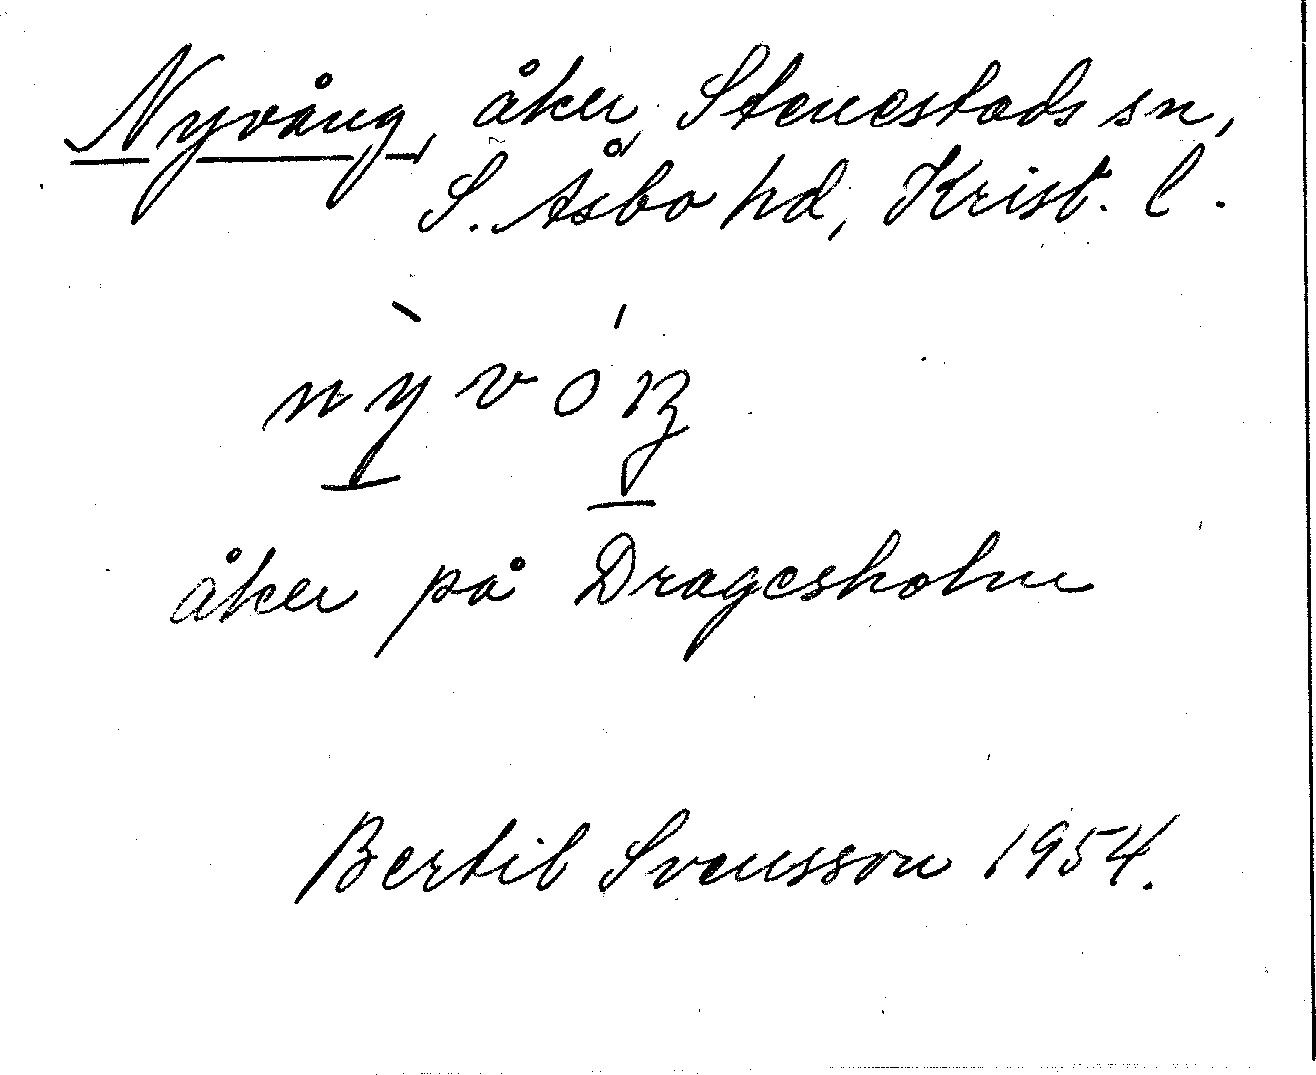 Nyvång, åker, Stenestads sn,
S. Åsbo hd, Krist. l.
nỳvóŋ
åker på Dragesholm
Bertil Svensson 1954.